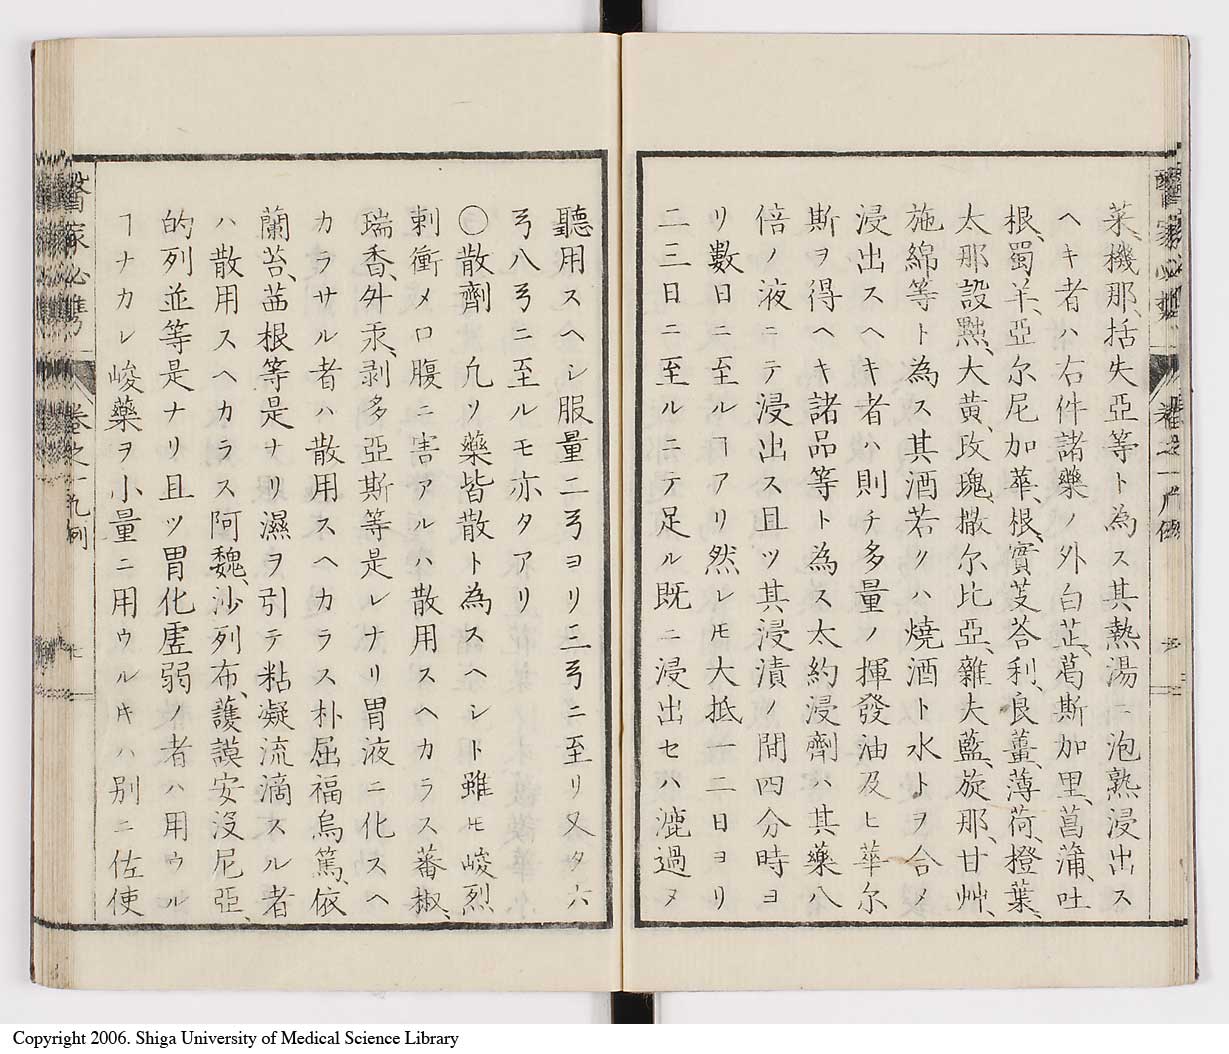 菜、機那、括失亞等ト為ス其熱湯ニ泡熟浸出ス
ヘキ者ハ右件諸藥ノ外白芷、葛斯加里、菖蒲、吐
根、蜀羊、亞尓尼加華、根、實芰荅利、良薑、薄荷、橙葉、
太那設㸃、大黄、玫瑰、撒尓比亞、雜夫藍、旋那、甘艸、
施綿等ト為ス其酒若クハ燒酒ト水トヲ合メ
浸出スヘキ者ハ則チ多量ノ揮發油及ヒ華尓
斯ヲ得ヘキ諸品等ト為ス太約浸劑ハ其藥八
倍ノ液ニテ浸出ス且ツ其浸漬ノ間四分時ヨ
リ數日ニ至ルヿアリ然レ𪜈大抵一二日ヨリ
二三日ニ至ルニテ足ル既ニ浸出セハ漉過メ
聽用スヘシ服量二弓ヨリ三弓ニ至リ又タ六
弓八弓ニ至ルモ亦タアリ
○散劑 凢ソ藥皆散ト為スヘシト雖𪜈峻烈
刺衝メロ腹ニ害アルハ散用スヘカラス蕃椒、
瑞香、外汞、剥多亞斯等是レナリ胃液ニ化スヘ
カラサル者ハ散用スヘカラス朴屈福烏篤、依
蘭苔、茁根等是ナリ濕ヲ引テ粘凝流滴スル者
ハ散用スヘカラス阿魏、沙列布、護謨安没尼亞、
的列並等是ナリ且ツ胃化虚弱ノ者ハ用ウル
ヿナカレ峻藥ヲ小量ニ用ウル𪜈ハ別ニ佐使
醫家必携
卷之一 凡例
Copyright 2006. Shiga University of Medical Science Library